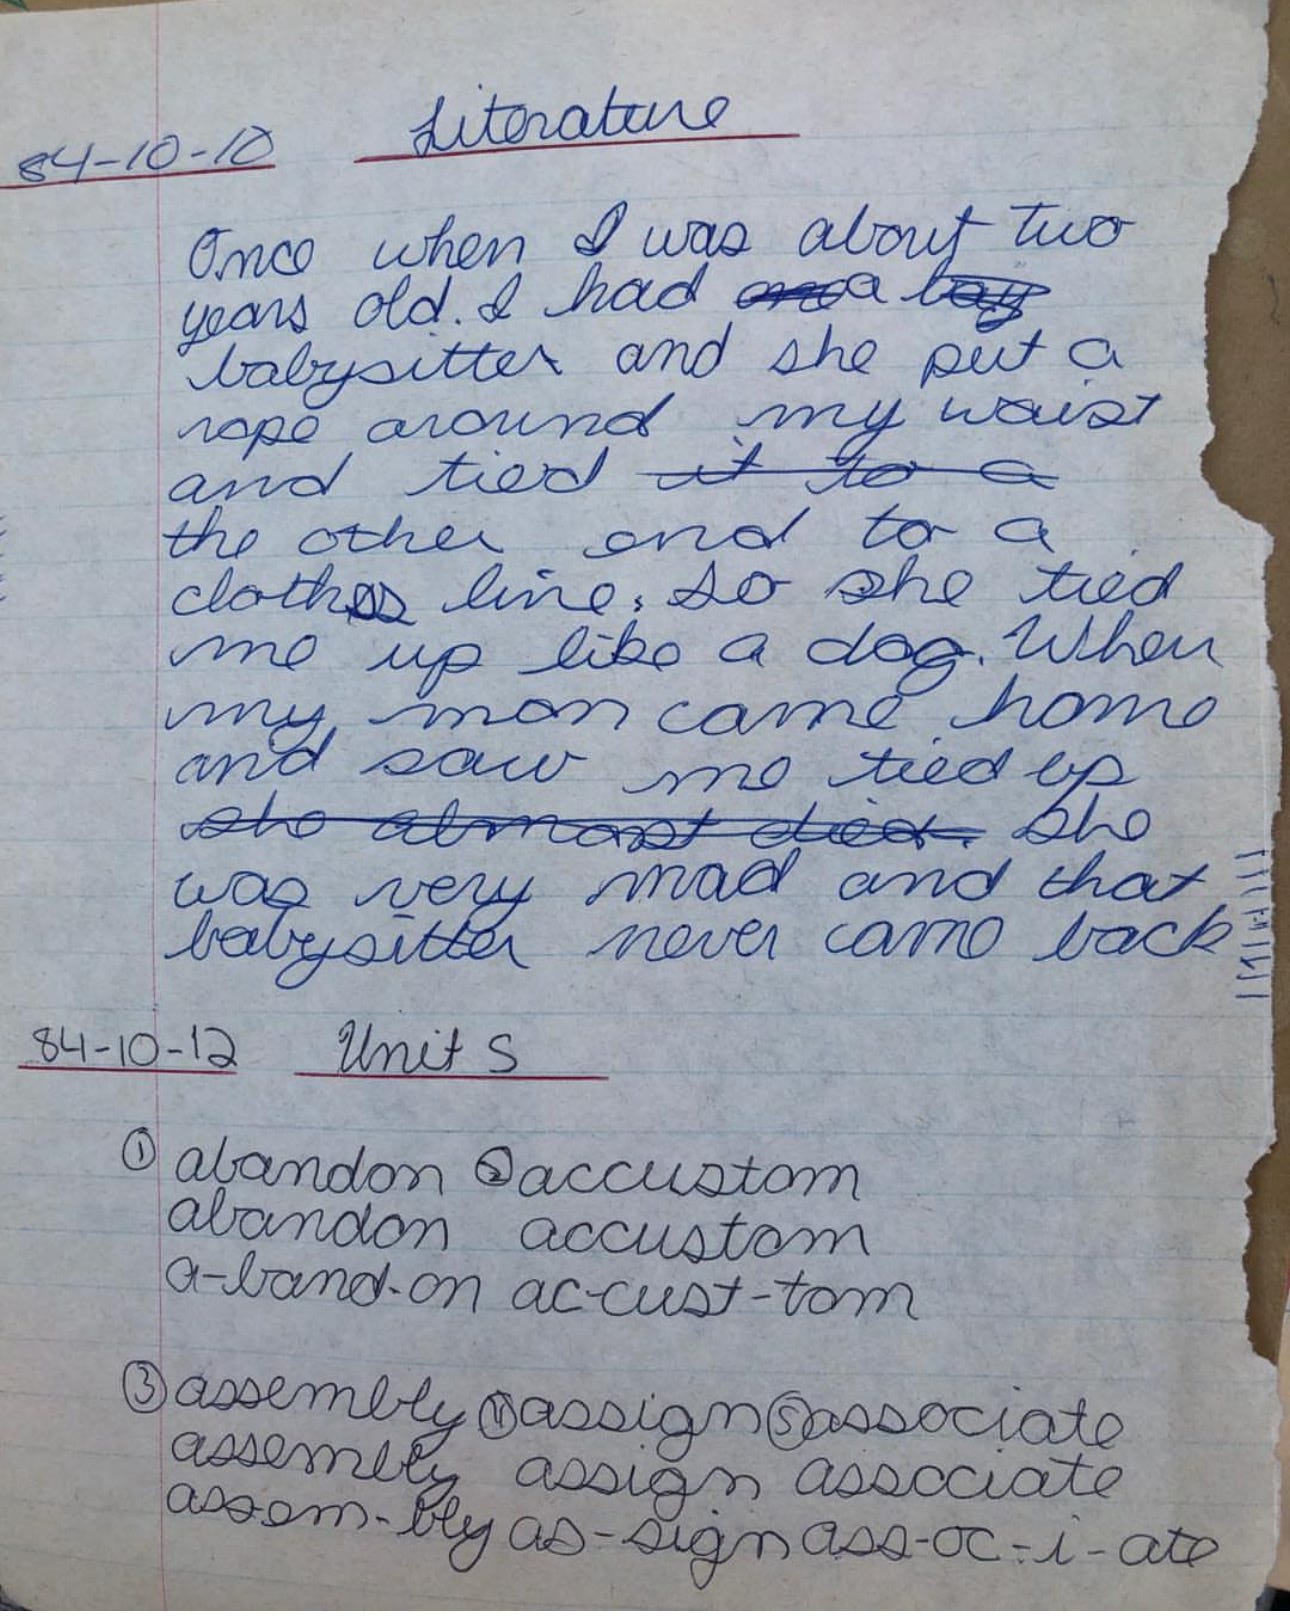 84-10-10 Literature
Once when I was about two
years old. I had a
babysitter and she put a
rope around my waist
and tied it to a
the other end to a
clothes line. So she tied
me up like a dog. When
my mom came home
and saw me tied up
she almost died. She
was very mad and that
babysitter never came back
84-10-12 Unit 5
① abandon ② accustom
abandon accustom
a-band-on ac-cust-tom
③ assembly ④ assign ⑤ associate
assembly assign associate
assem-bly as-sign ass-oc-i-ate